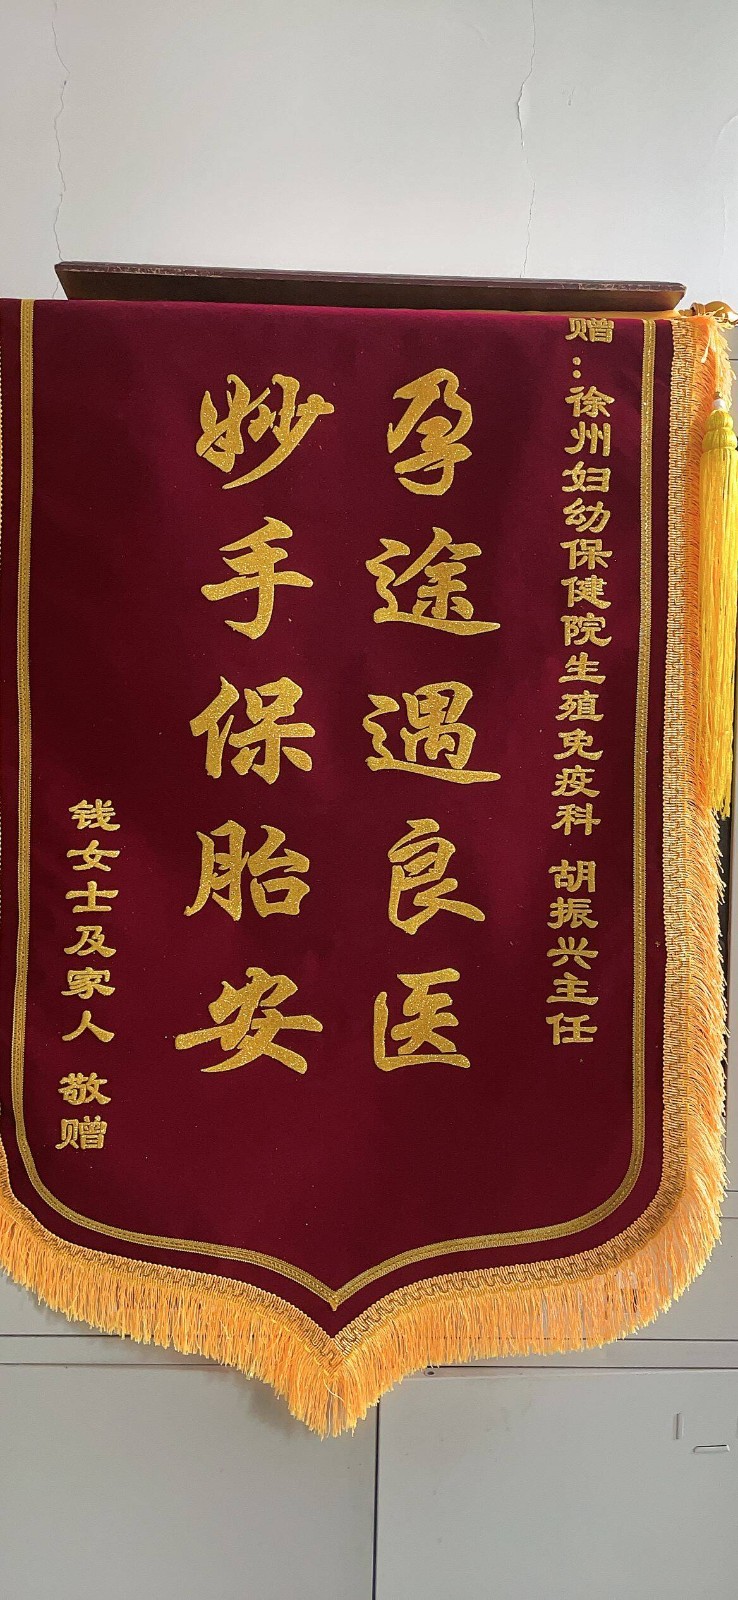 赠：徐州妇幼保健院生殖免疫科 胡振兴主任
孕途遇良医
妙手保胎安
钱女士及家人 敬赠